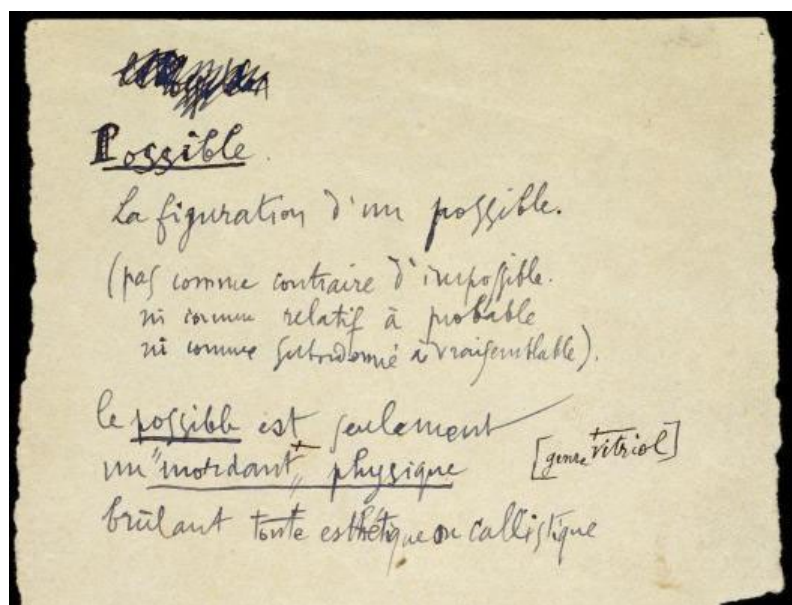 Possible.
La figuration d'un possible.
(pas comme contraire d'impossible.
ni comme relatif à probable
ni comme subordonné à vraisemblable).
le possible est seulement
un "mordant" + physique [genre + vitriol]
brûlant toute esthétique ou callistique